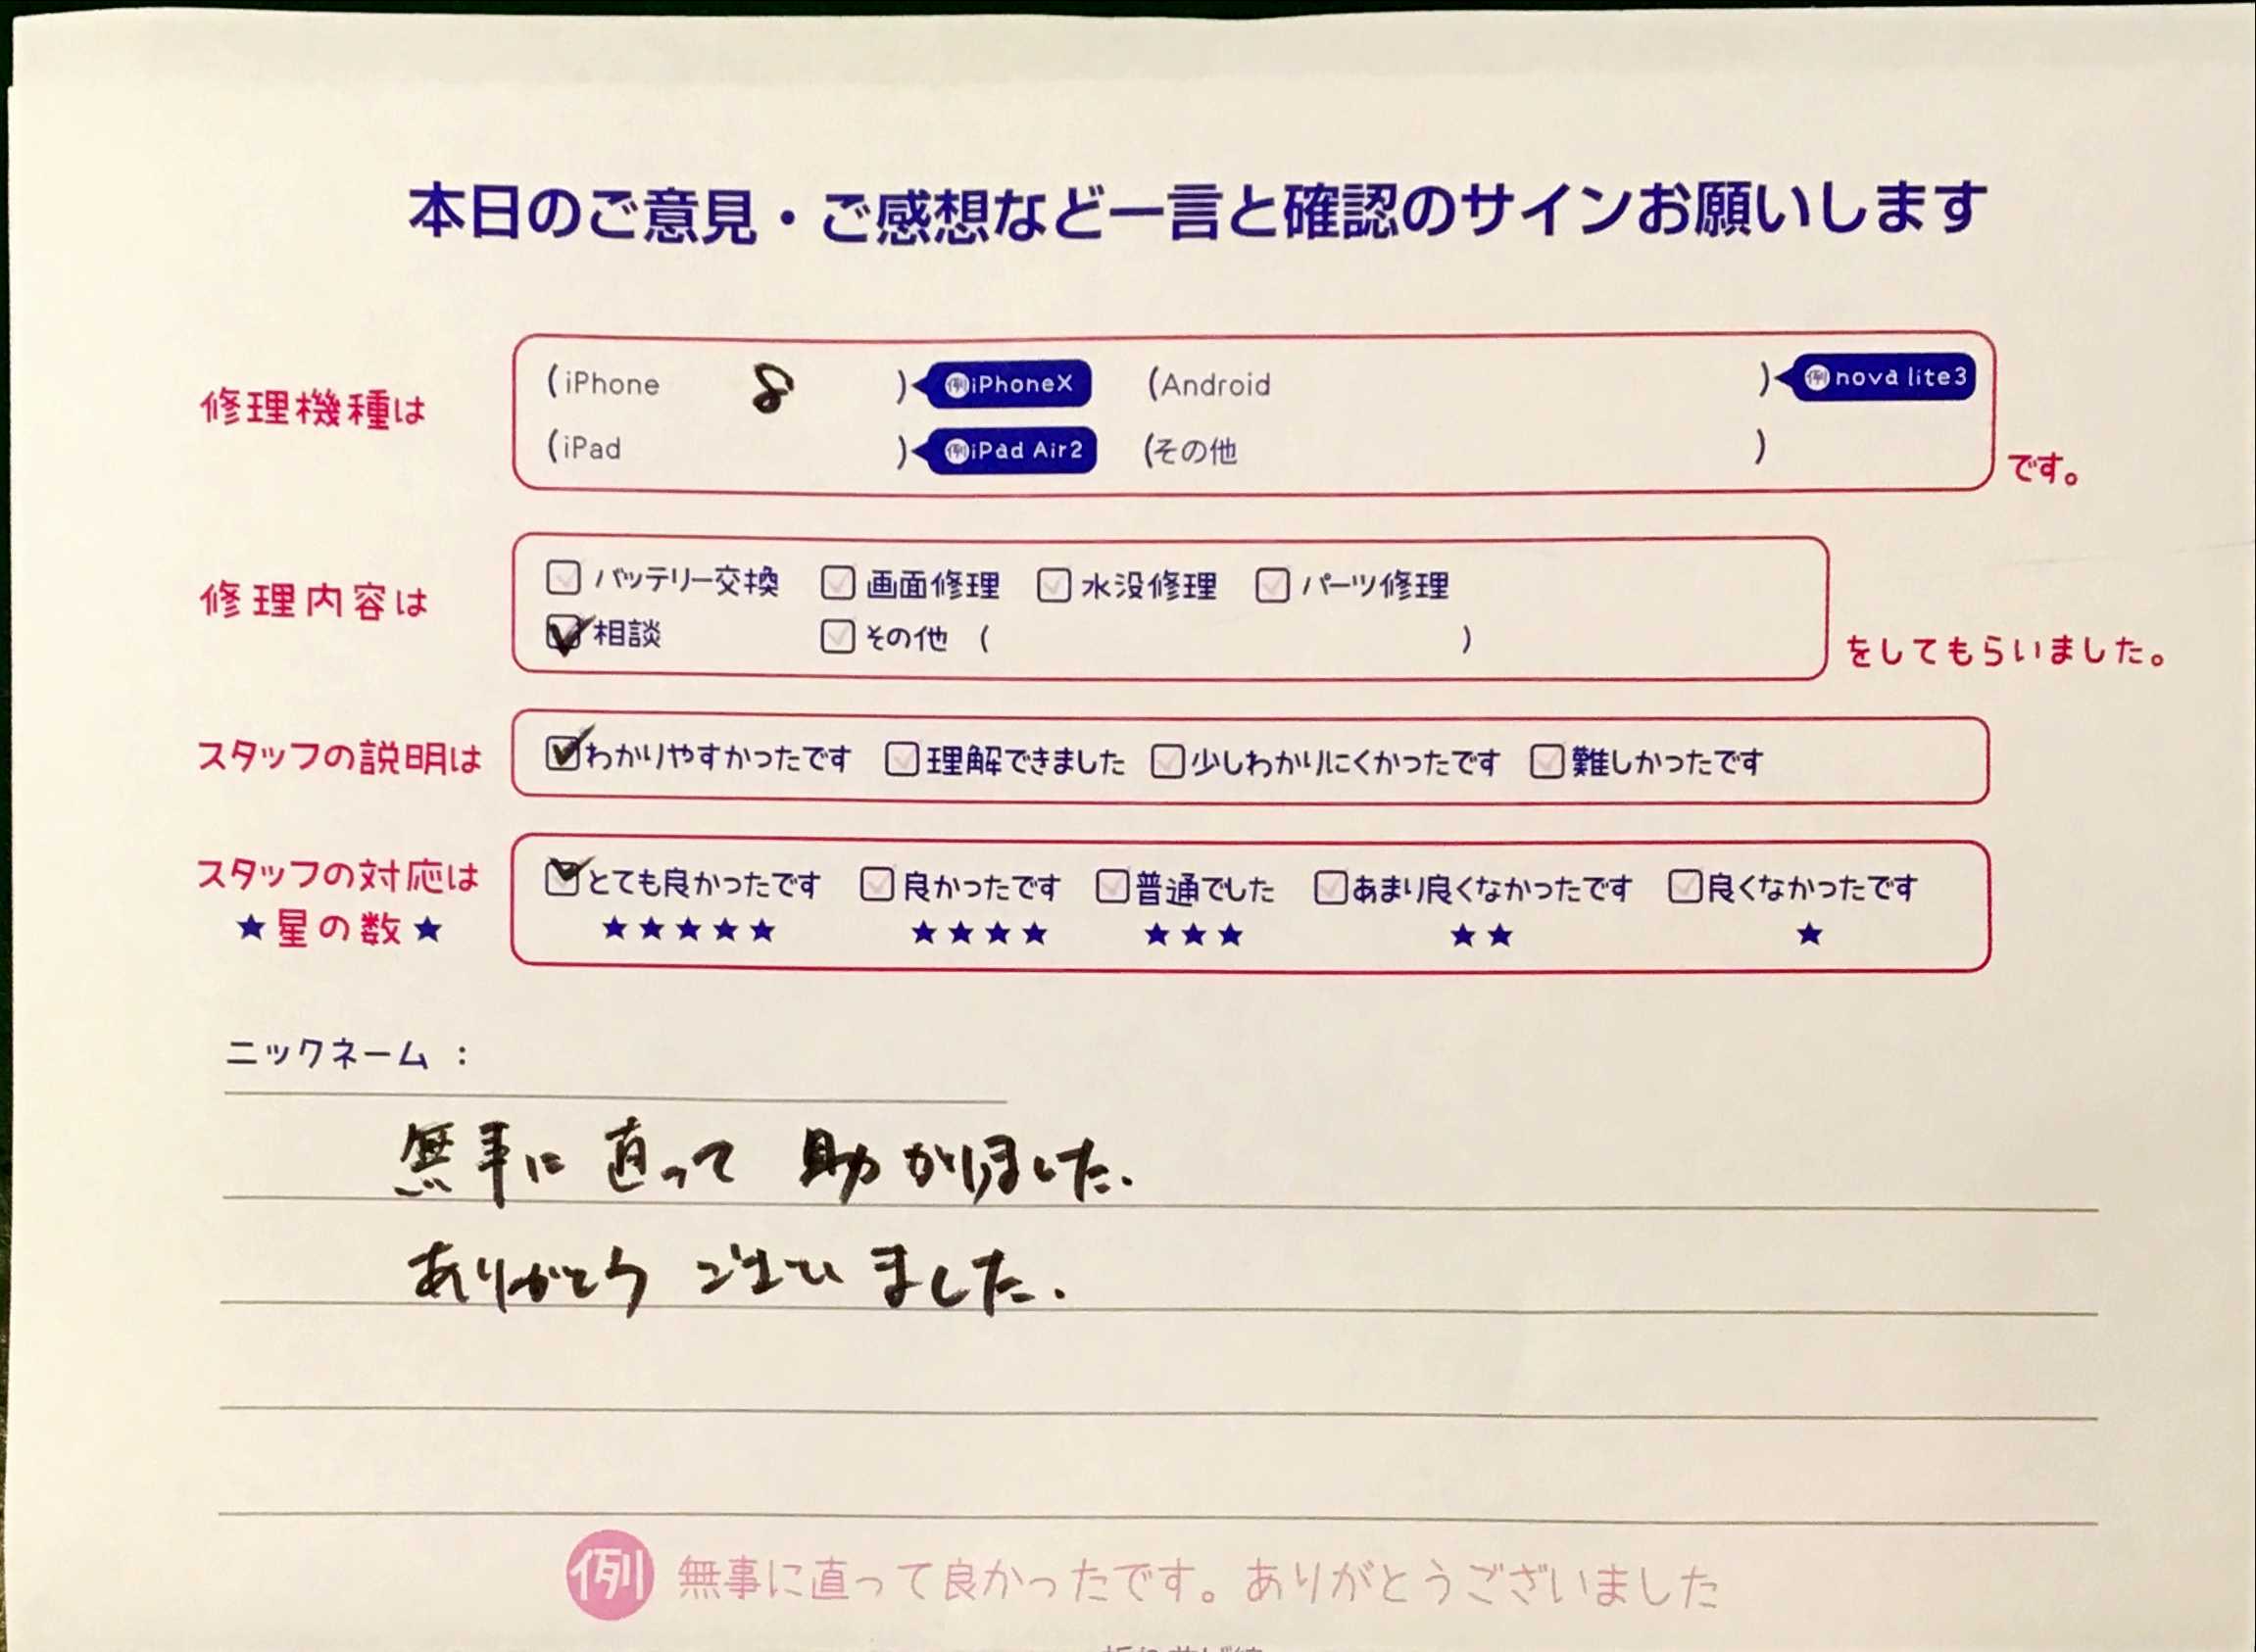 本日のご意見・ご感想など一言と確認のサインお願いします
修理機種は
(iPhone 8 ) 例iPhoneX (Android ) 例nova lite3
(iPad ) 例iPad Air2 (その他 )
です。
修理内容は
バッテリー交換 画面修理 水没修理 パーツ修理
相談 その他 ( )
をしてもらいました。
スタッフの説明は
わかりやすかったです 理解できました 少しわかりにくかったです 難しかったです
スタッフの対応は
★星の数★
とても良かったです 良かったです 普通でした あまり良くなかったです 良くなかったです
★★★★★ ★★★★ ★★★ ★★ ★
ニックネーム：
無事に直って助かりました.
ありがとうございました.
例 無事に直って良かったです。ありがとうございました